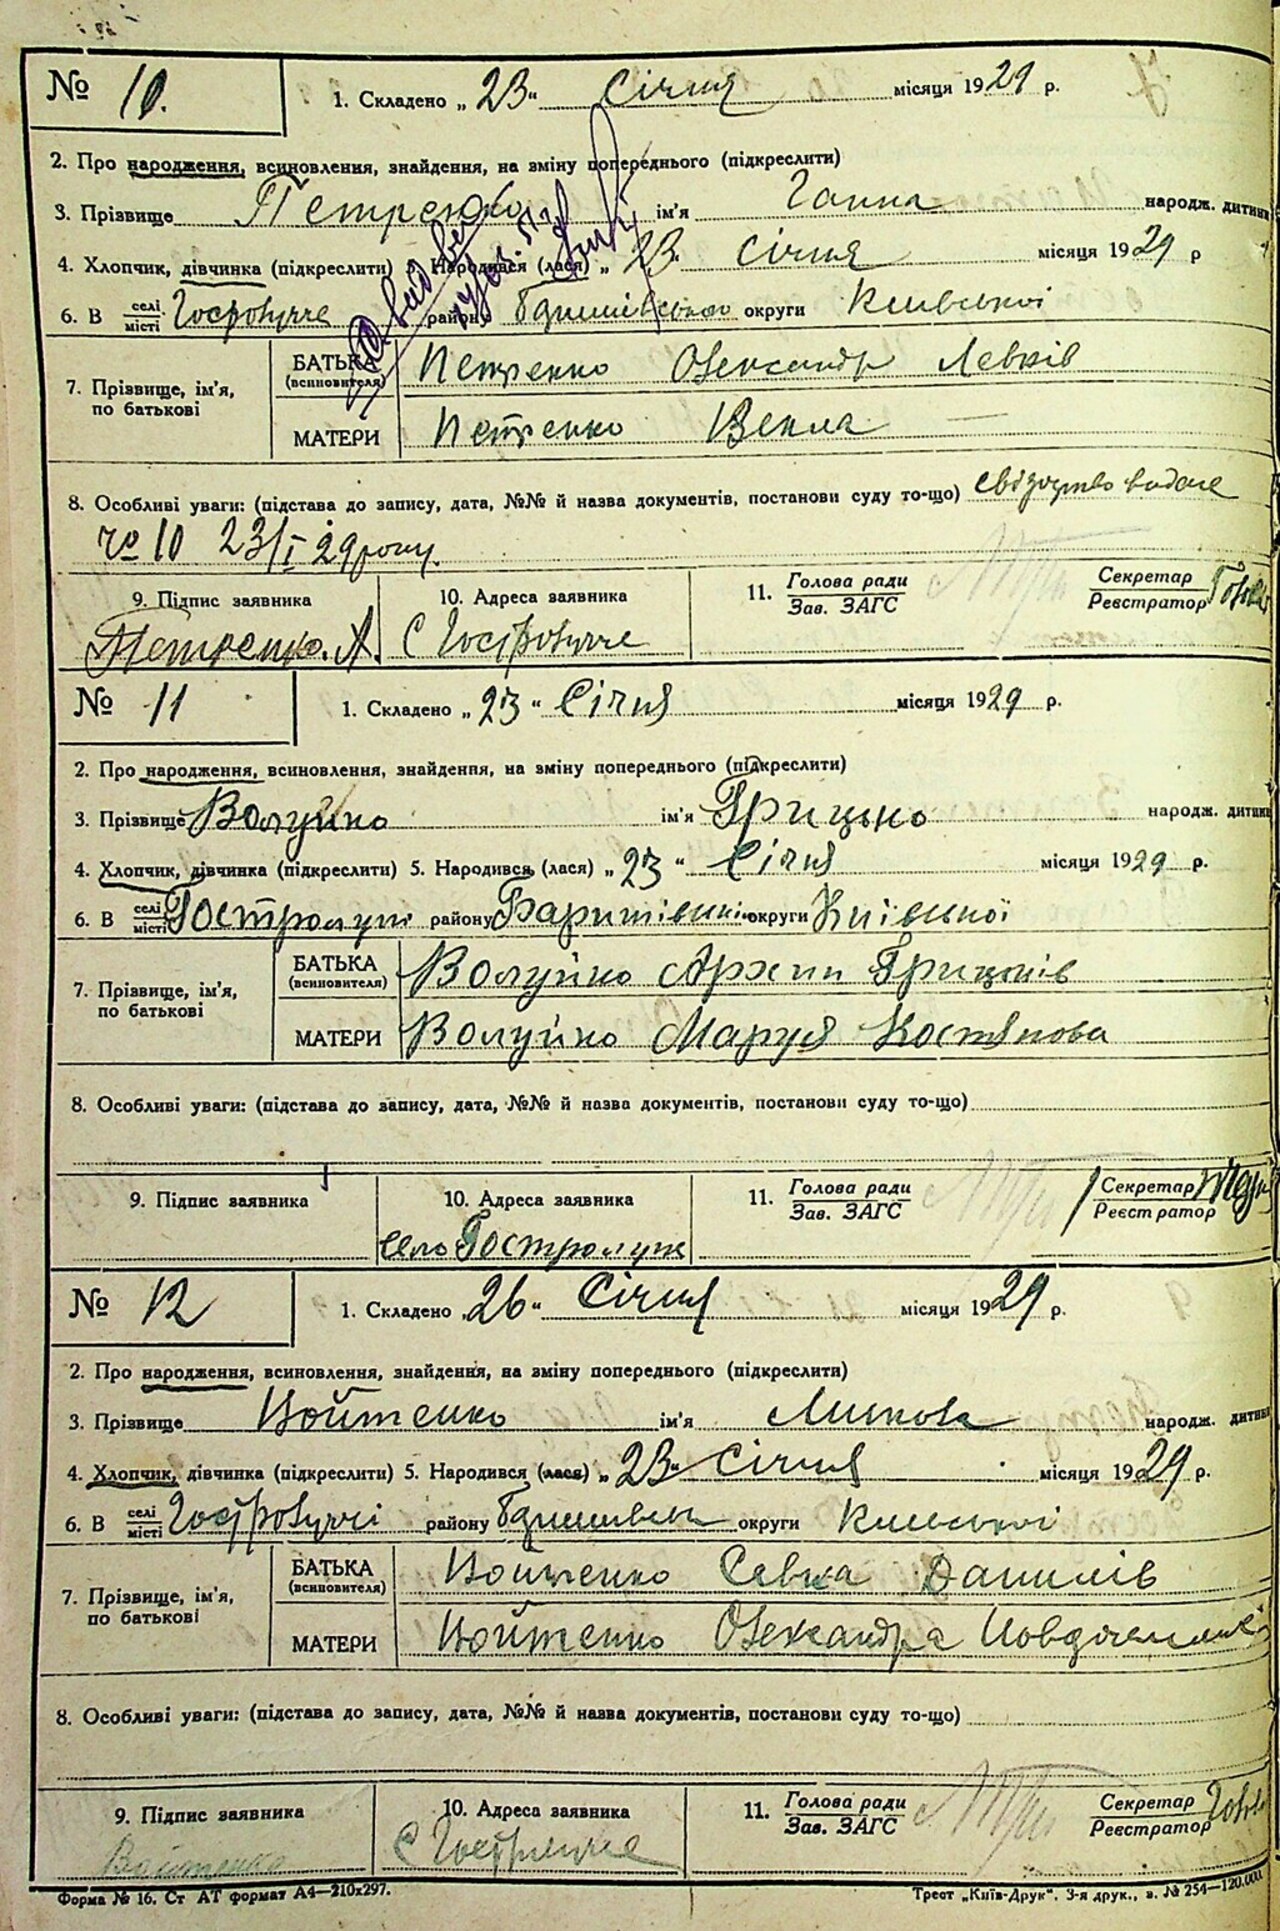 № 10. 1. Складено „23“ Січня місяця 1929 р.
2. Про народження, всиновлення, знайдення, на зміну попереднього (підкреслити)
3. Прізвище Петренко ім'я Ганна народж. дитини
4. Хлопчик, дівчинка (підкреслити) Народився (лася) „23“ Січня місяця 1929 р
6. В селі місті Гостролуччє району округи Київської
7. Прізвище, ім'я, по батькові
БАТЬКА (всиновителя) Петренко Олександр Левків
МАТЕРИ Петренко Векла —
8. Особливі уваги: (підстава до запису, дата, №№ й назва документів, постанови суду то-що) свідоцтво видане
№ 10 23/I 29 року.
9. Підпис заявника 10. Адреса заявника 11. Голова ради Зав. ЗАГС Секретар Реєстратор
Петренко. А. с Гостролучче
№ 11 1. Складено „23“ Січня місяця 1929 р.
2. Про народження, всиновлення, знайдення, на зміну попереднього (підкреслити)
3. Прізвище Волуйко ім'я Грицько народж. дитини
4. Хлопчик, дівчинка (підкреслити) 5. Народився (лася) „23“ Січня місяця 1929 р.
6. В селі місті району округи Київської
7. Прізвище, ім'я, по батькові
БАТЬКА (всиновителя) Волуйко Архип Грицьків
МАТЕРИ Волуйко Маруся Костянова
8. Особливі уваги: (підстава до запису, дата, №№ й назва документів, постанови суду то-що)
9. Підпис заявника 10. Адреса заявника 11. Голова ради Зав. ЗАГС Секретар Реєстратор
село Гостролучє
№ 12 1. Складено „26“ Січня місяця 1929 р.
2. Про народження, всиновлення, знайдення, на зміну попереднього (підкреслити)
3. Прізвище Войтенко ім'я Микола народж. дитини
4. Хлопчик, дівчинка (підкреслити) 5. Народився (лася) „23“ Січня місяця 1929 р.
6. В селі місті Гостролуччі району округи Київської
7. Прізвище, ім'я, по батькові
БАТЬКА (всиновителя) Войтенко Савка Данилів
МАТЕРИ Войтенко Олександра
8. Особливі уваги: (підстава до запису, дата, №№ й назва документів, постанови суду то-що)
9. Підпис заявника 10. Адреса заявника 11. Голова ради Зав. ЗАГС Секретар Реєстратор
Войтенко с Гостролучче
Форма № 16. Ст АТ формат А4—210х297. Трест „Київ-Друк“. 3-я друк., з. № 254—120.000